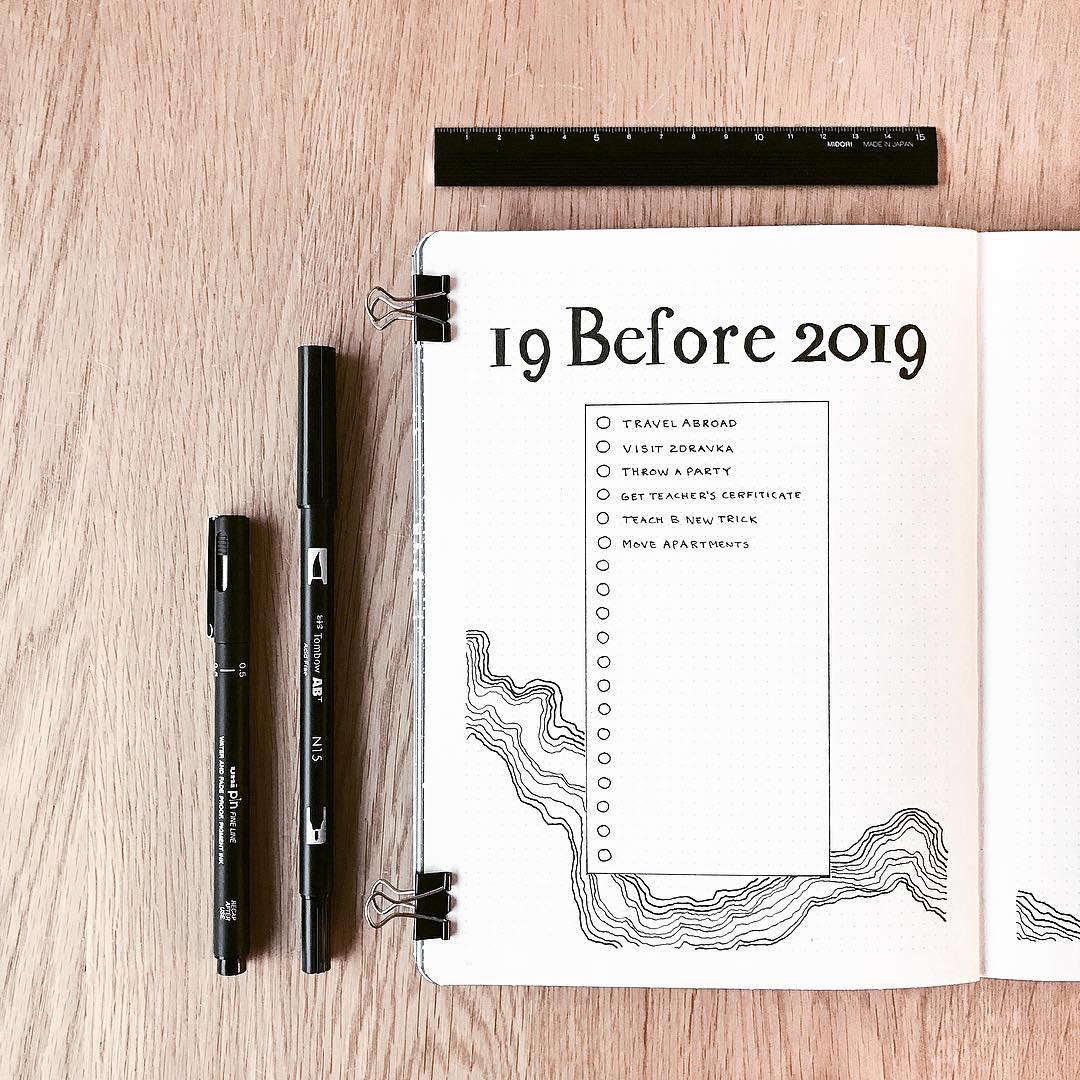 1 2 3 4 5 6 7 8 9 10 11 12 13 14 15
MIDORI MADE IN JAPAN
19 Before 2019
TRAVEL ABROAD
VISIT ZDRAVKA
THROW A PARTY
GET TEACHER'S CERFITICATE
TEACH B NEW TRICK
MOVE APARTMENTS
Tombow ABT
Acid Free
N15
0.5
uni pin FINE LINE
WATER AND FADE PROOF, PIGMENT INK
RECAP
AFTER
USE